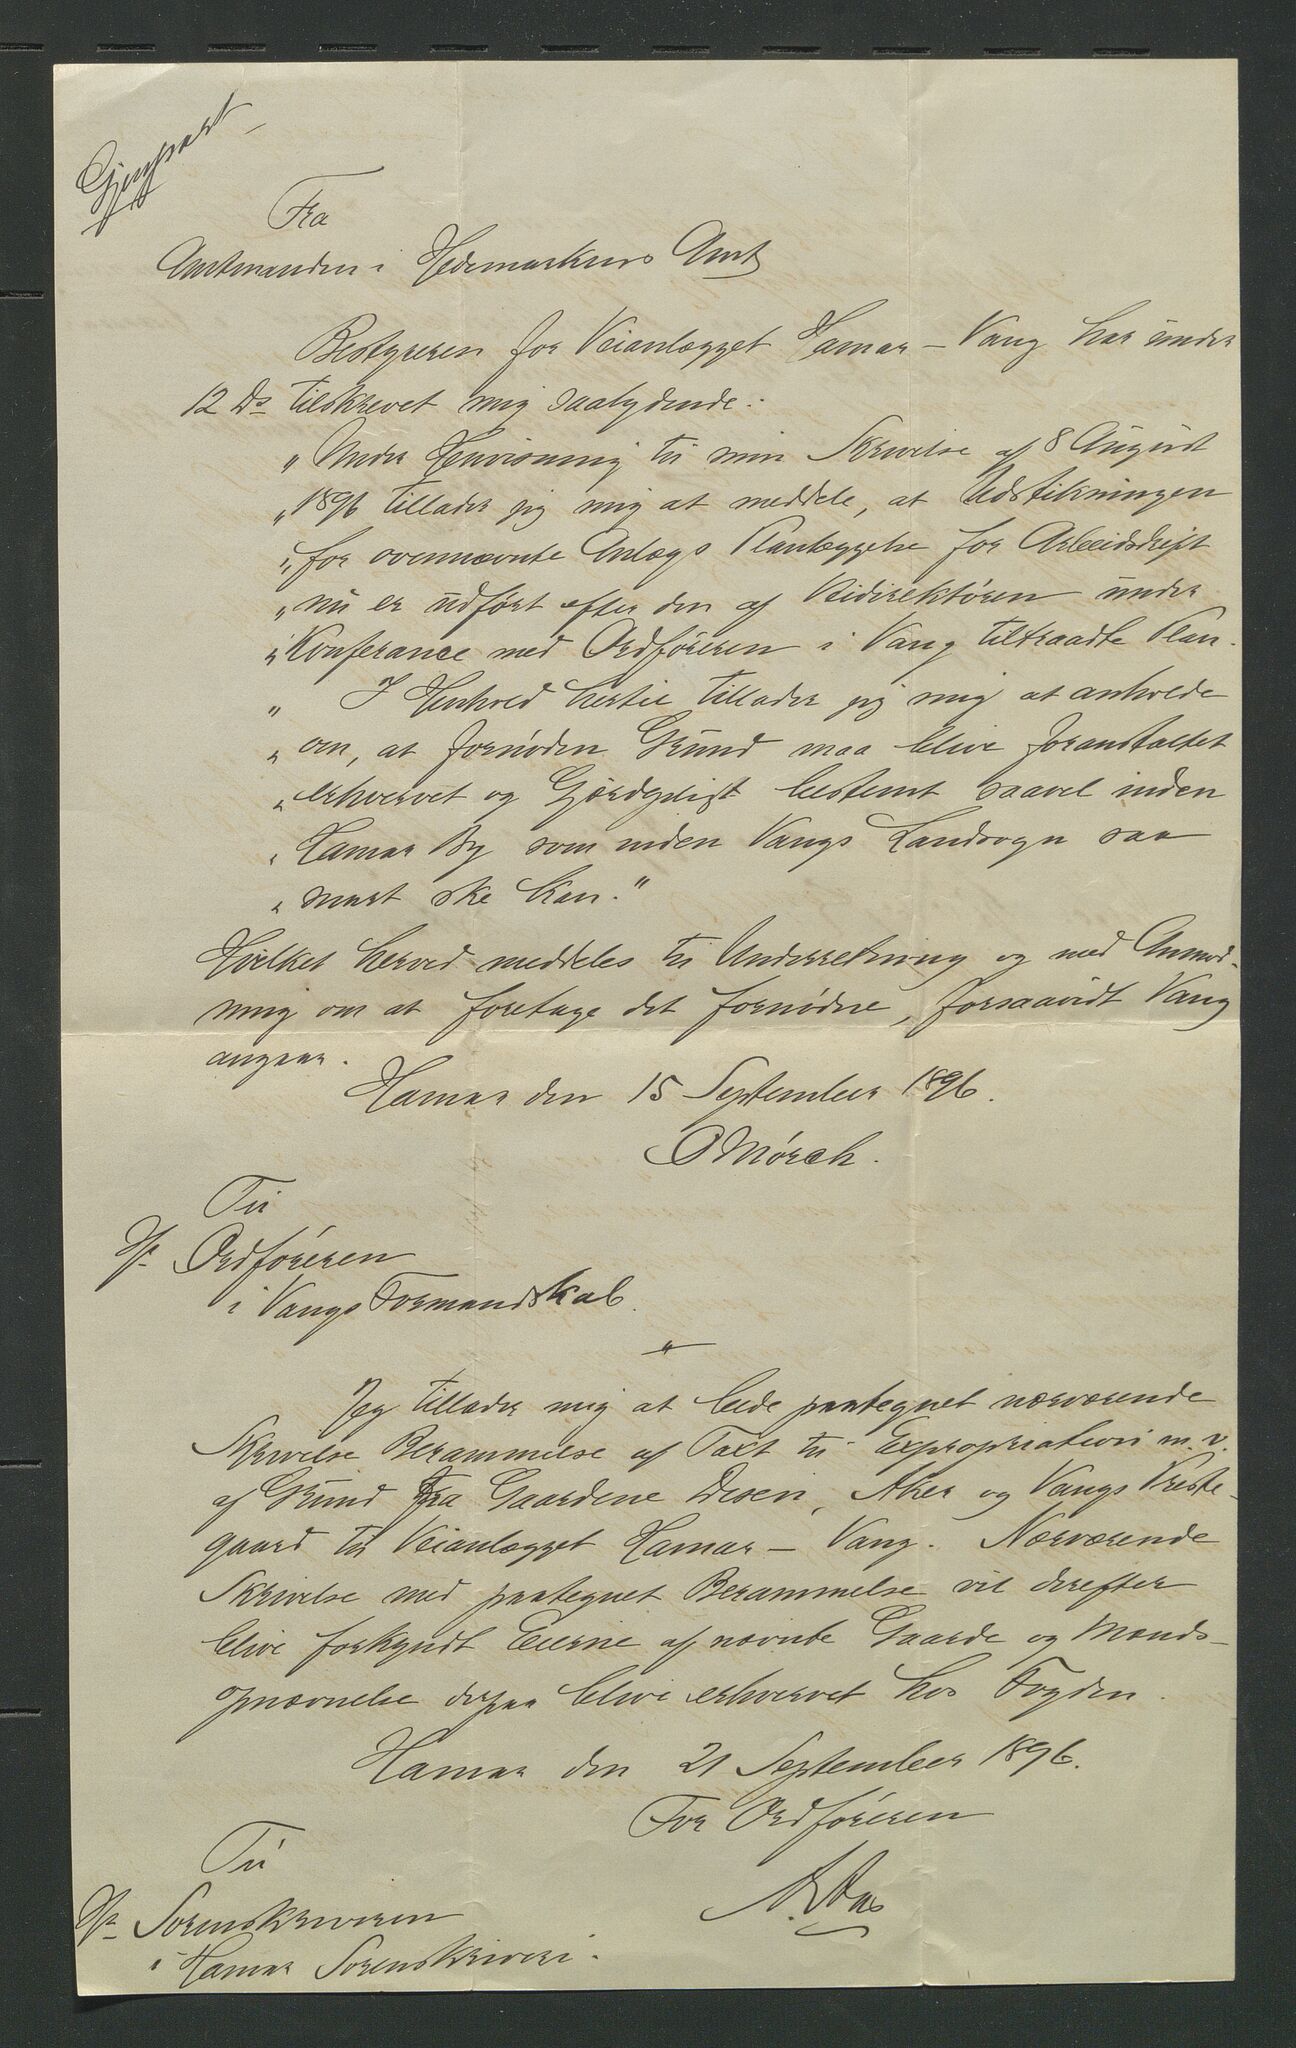 Gjenpart
Fra
Amtmanden i Hedemarkens Amt
Bestyreren for Veianlægget Hamar – Vang har under
12 Ds tilskrevet mig saalydende:
„Under Henvisning til min Skrivelse af 8 August
„1896 tillader jeg mig at meddele, at Udstikningen
„for ovennævnte Anlægs Planlæggelse for Arbeidsdrift
„nu er udført efter den af Veidirektøren under
„Konferance med Ordføreren i Vang tiltraadte Plan.
„ I Henhold hertil tillader jeg mig at anholde
„om, at fornøden Grund maa blive foranstaltet
„erhvervet og Gjerdepligt bestemt saavel inden
„Hamar By som inden Vangs Landsogn saa
„snart ske kan."
Hvilket herved meddeles til Underretning og med Anmod-
ning om at foretage det fornødne, forsaavidt Vang
angaar.
Hamar den 15 September 1896.
O Mörch.
Til
Hr. Ordføreren
i Vangs Formandskab.
"
Jeg tillader mig at bede paategnet nærværende
Skrivelse Berammelse af Taxt til Expropriation m. v.
af Grund fra Gaardene Disen, Aker og Vangs Preste-
gaard til Veianlægget Hamar – Vang. Nærværende
Skrivelse med paategnet Berammelse vil derefter
blive forkyndt Eierne af nævnte Gaarde og Mands-
opnævnelse derpaa blive erhvervet hos Fogden.
Hamar den 21 September 1896.
For Ordføreren
Til
Hr. Sorenskriveren
i Hamar Sorenskriveri.